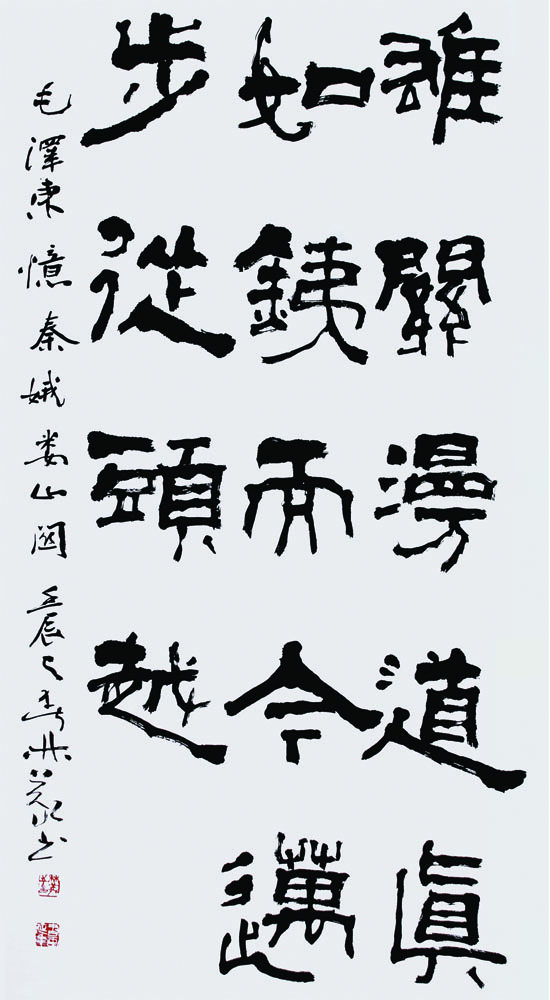 雄關漫道眞
如銕而今邁
步從頭越
毛澤東憶秦娥娄山関 壬辰之春 書